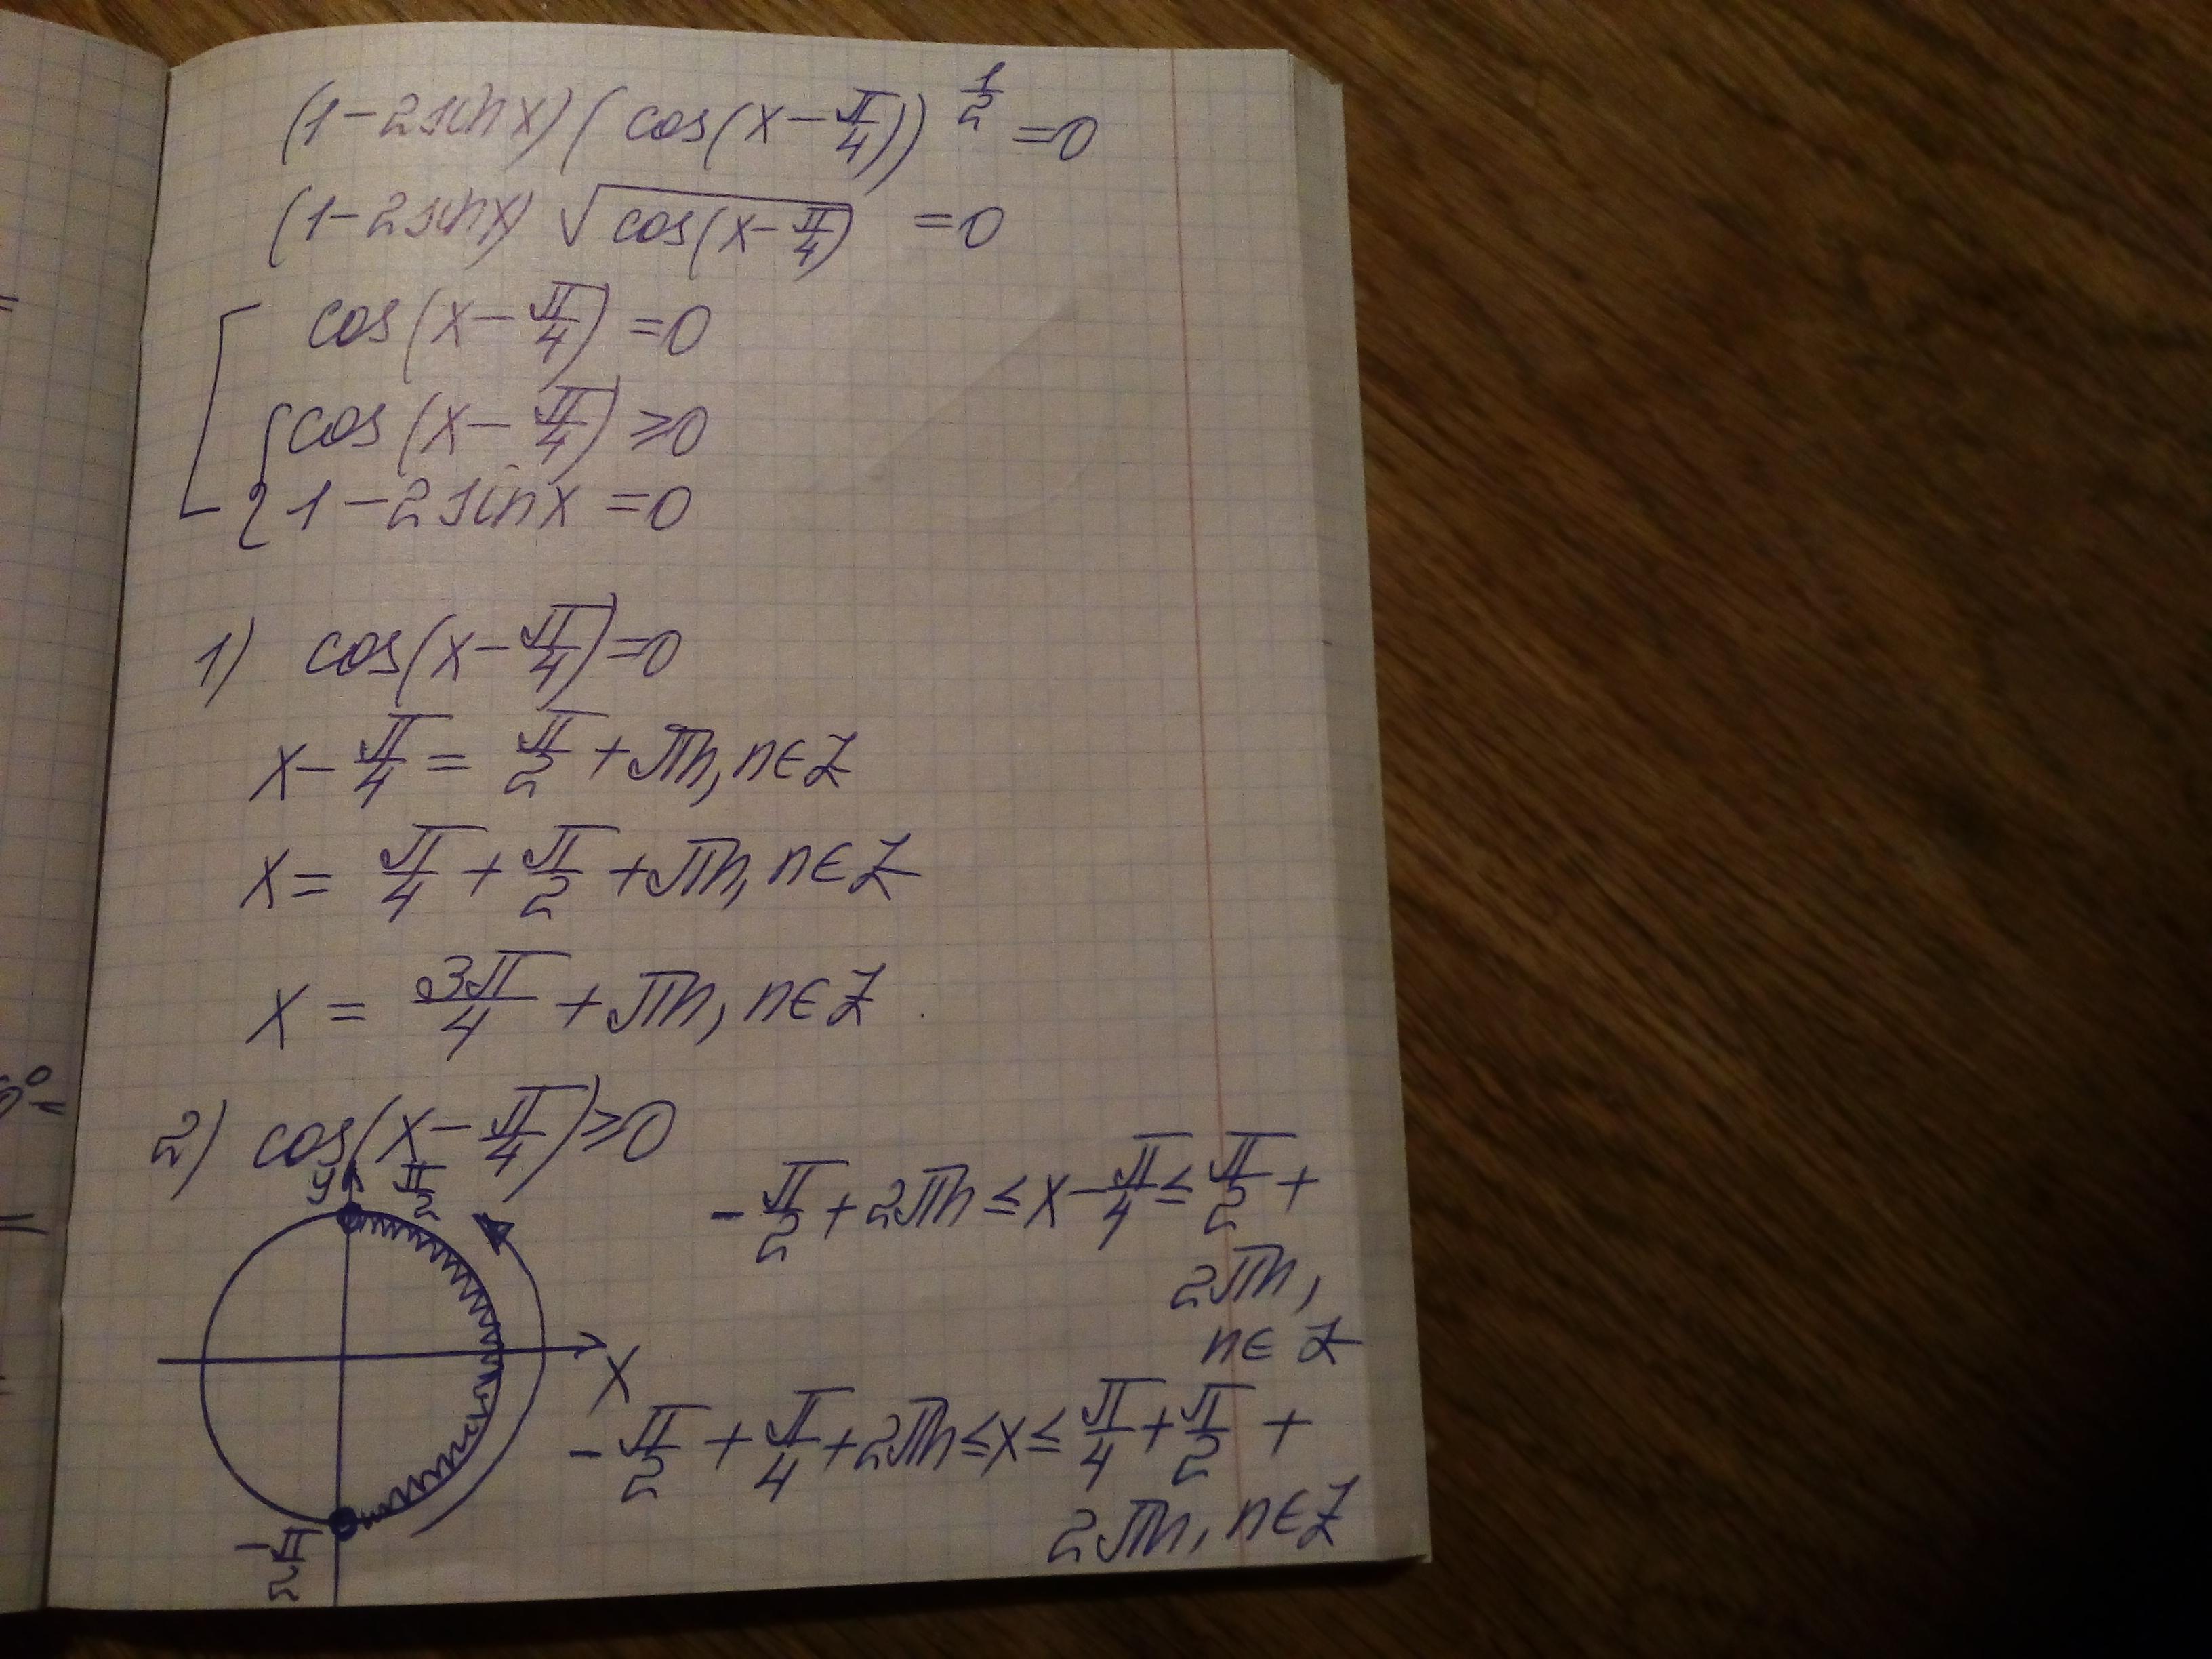 (1-2sinx)(cos(x-π/4))^(1/2)=0
(1-2sinx)√(cos(x-π/4))=0
[ cos(x-π/4)=0
{ cos(x-π/4)≥0
1-2sinx=0
1) cos(x-π/4)=0
x-π/4=π/2+πn, n∈Z
x=π/4+π/2+πn, n∈Z
x=3π/4+πn, n∈Z
2) cos(x-π/4)≥0
y π/2
-π/2+2πn≤x-π/4≤π/2+
2πn,
n∈Z
x
-π/2+π/4+2πn≤x≤π/4+π/2+
2πn, n∈Z
-π/2